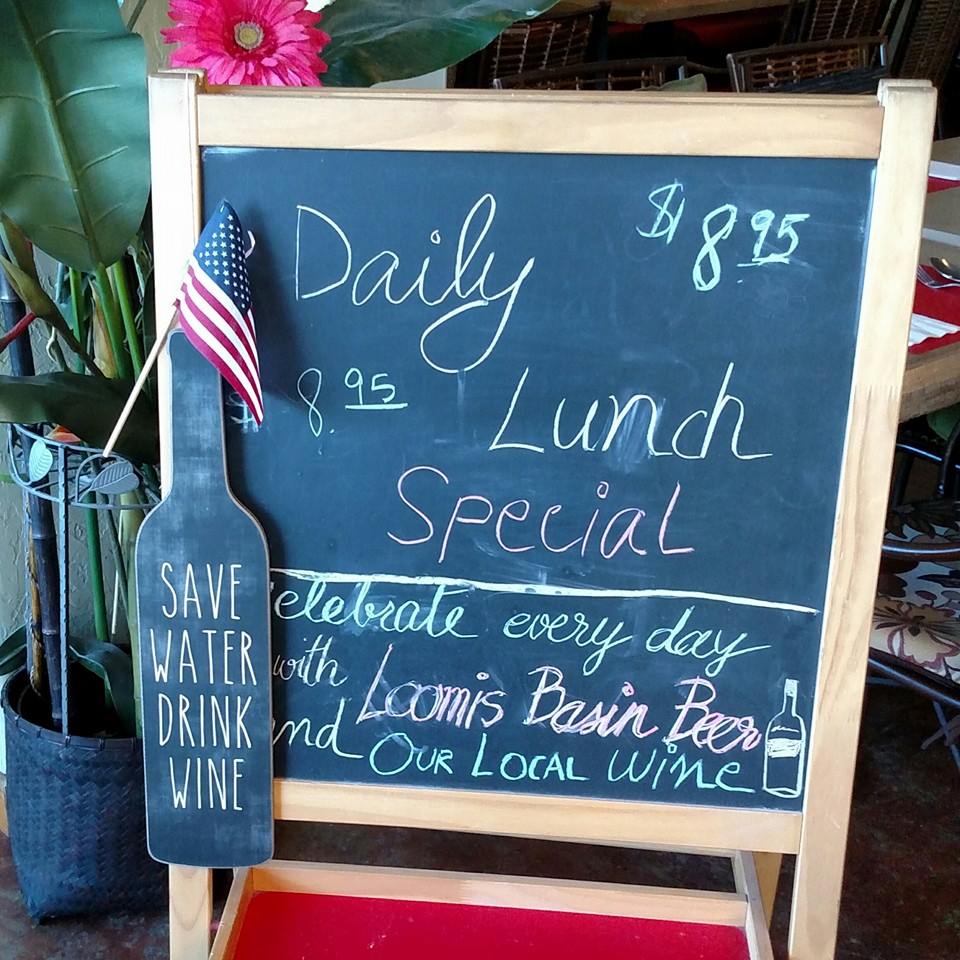 Daily $8.95
$8.95 Lunch
Special
elebrate every day
with Loomis Basin Beer
nd Our Local Wine
SAVE
WATER
DRINK
WINE